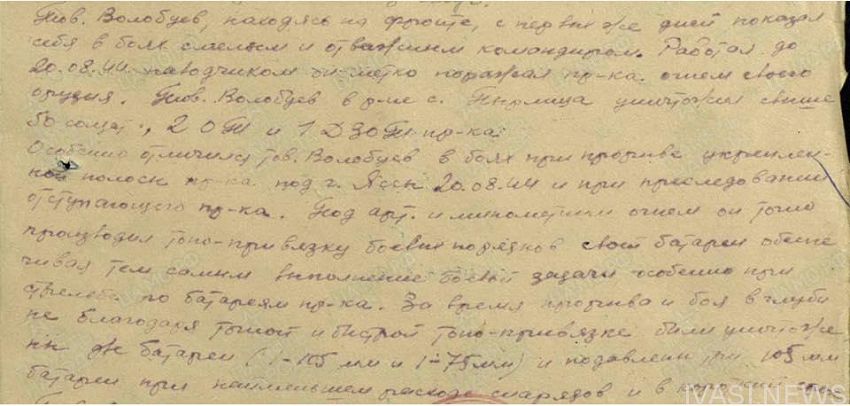 Тов. Волобуев, находясь на фронте, с первых же дней показал
себя в боях смелым и отважным командиром. Работая до
20.08.44 наводчиком он метко поражал пр-ка огнем своего
орудия. Тов. Волобуев в р-не с. Пырлица уничтожил свыше
50 солдат, 2 ОТ и 1 ДЗОТ пр-ка.
Особенно отличился тов. Волобуев в боях при прорыве укреплен-
ной полосы пр-ка под г. Яссы 20.08.44 и при преследовании
отступающего пр-ка. Под арт. и минометным огнем он точно
производил топо-привязку боевых порядков своей батареи обеспе
чивая тем самым выполнение боевой задачи особенно при
стрельбе по батареям пр-ка. За время прорыва и боя в глуби
не благодаря точной и быстрой топо-привязке были уничтоже
ны две батареи (1-105 мм и 1-75 мм) и подавлены три 105 мм
батареи при наименьшем расходе снарядов и в короткий
IVASI NEWS